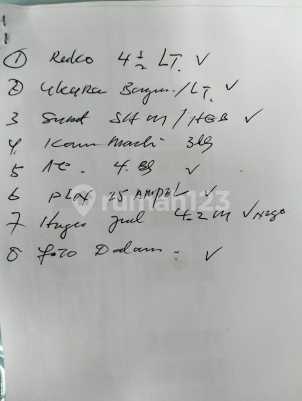 ① Ruko 4 1/2 LT. ✓
② Ukuran Bangun/LT. ✓
3 Surat SHM/HGB ✓
4. Kamar Mandi 3
5 AC. 4. ✓
6 PLN 25 AMPER ✓
7 Harga Jual 4.2 M ✓ Nego
8 Foto Dalam. ✓
rumah123